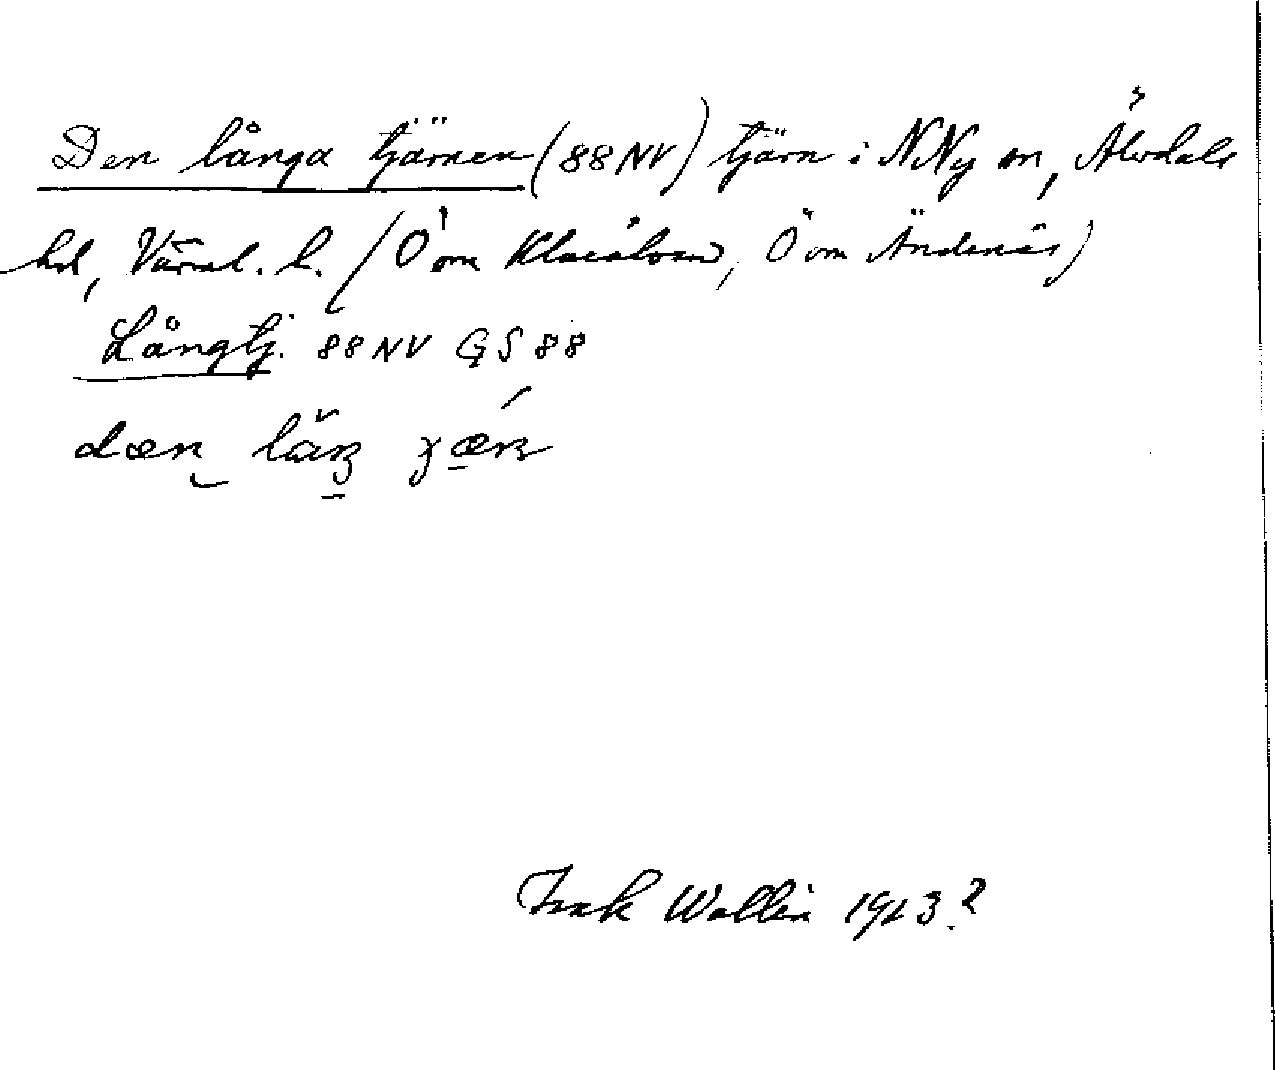 Den långa tjärnen (88 NV) tjärn i N Ny sn, Älvdals
hd, Värml. l. (Ö om Klarälven, Ö om Ändenäs)
Långtj. 88 NV GS 88
Wallin 1913?